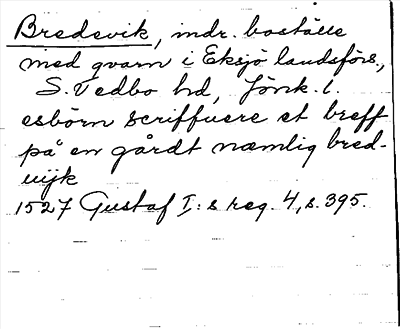 Bredevik, indr. boställe
med qvarn i Eksjö landsförs.,
S. Vedbo hd, Jönk. l.
esbörn scriffuere et breff
på en gårdt næmlig bred-
uijk
1527 Gustaf I:s reg. 4, s. 395.